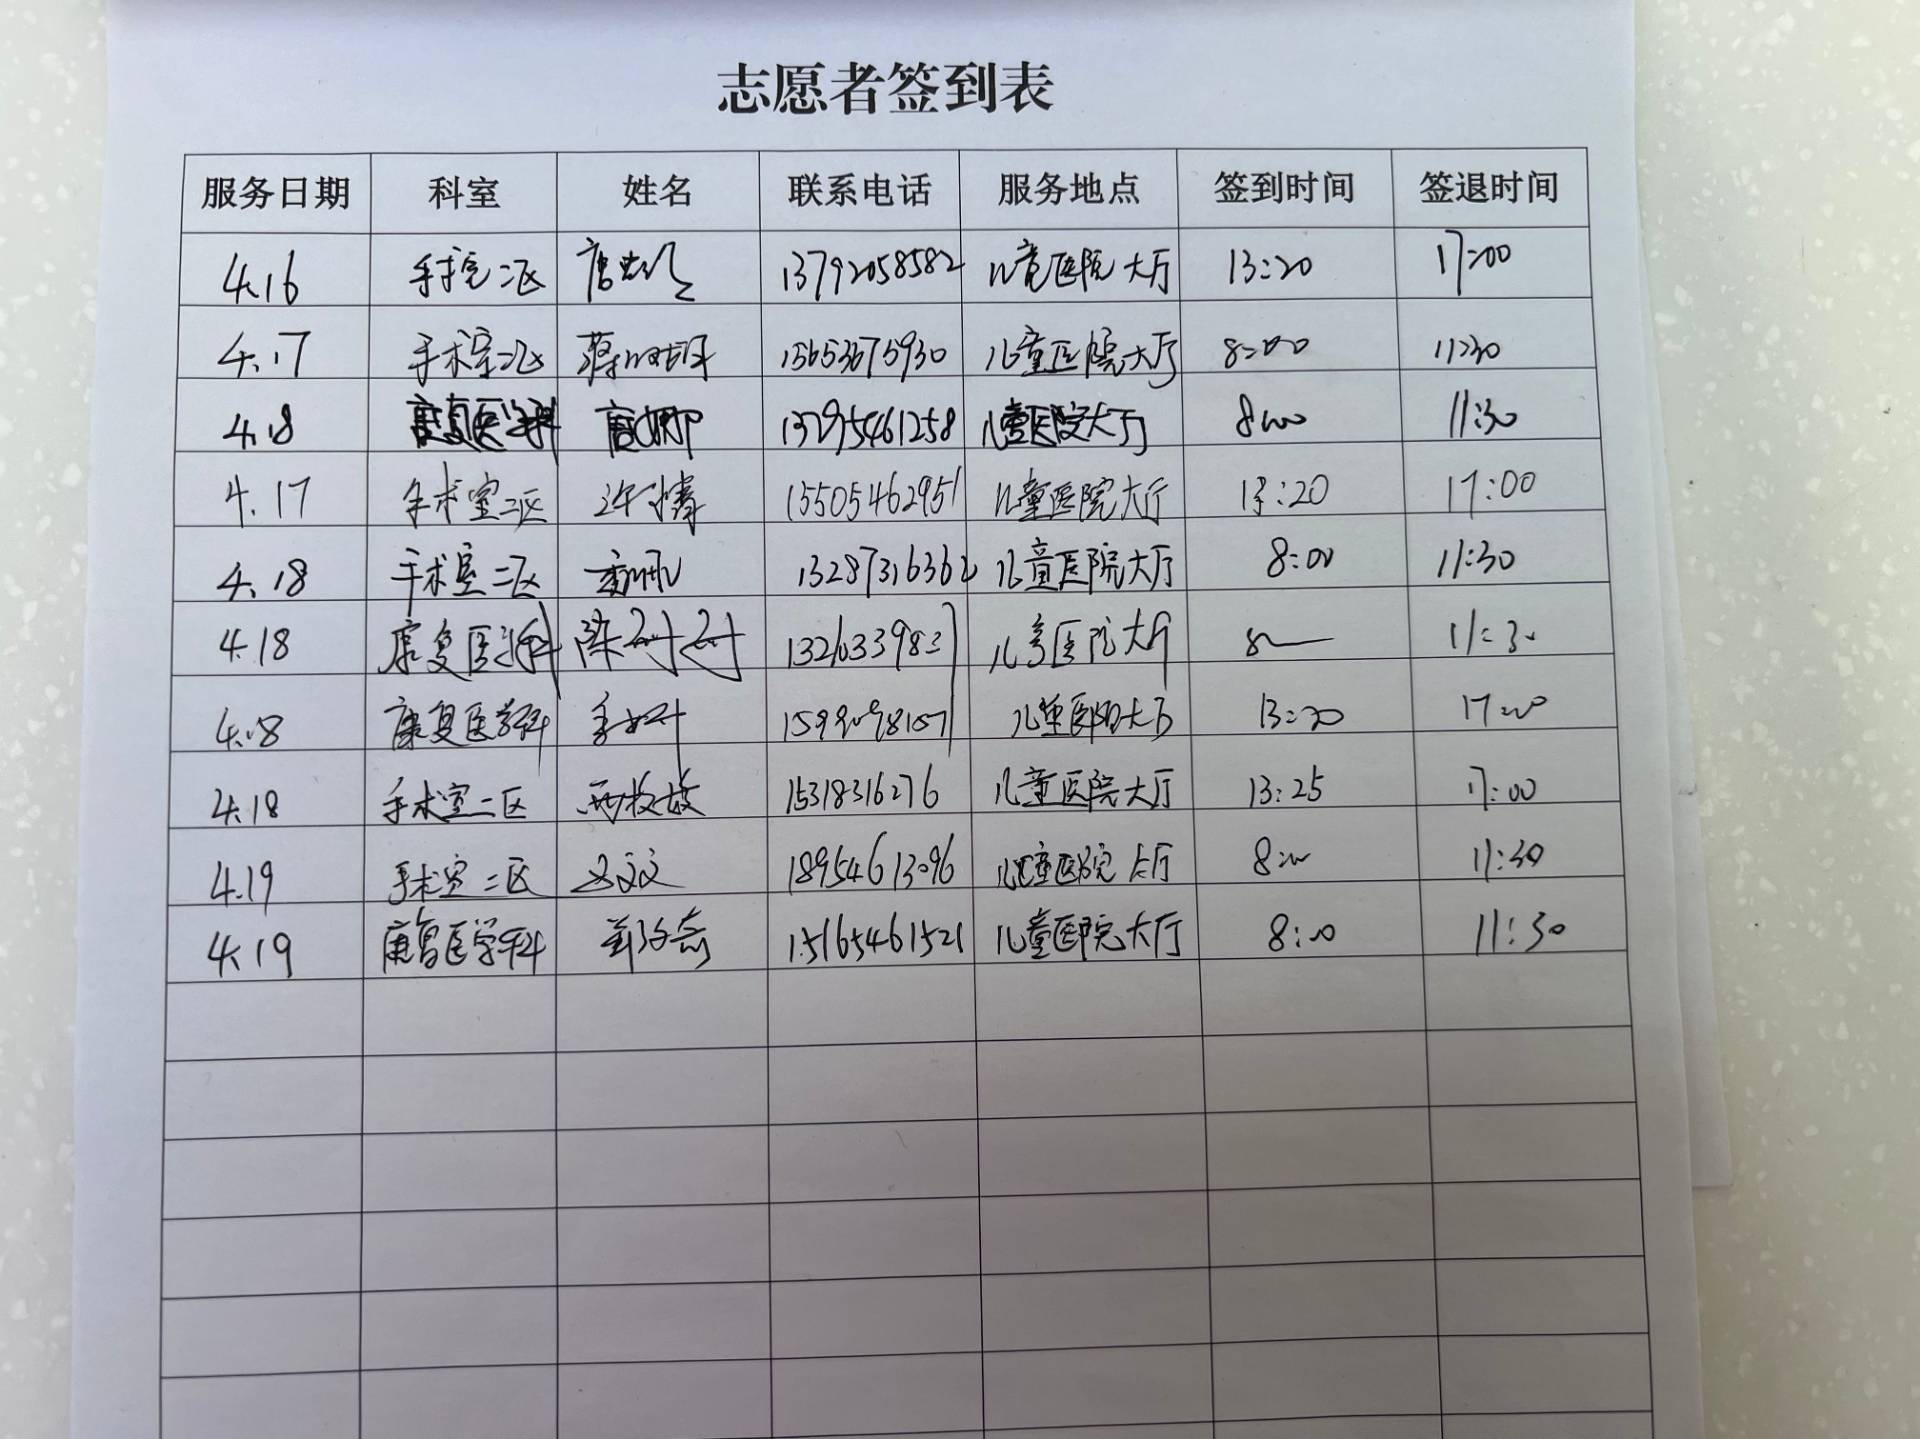 志愿者签到表
服务日期 科室 姓名 联系电话 服务地点 签到时间 签退时间
4.16 手术室二区 13792058582 儿童医院大厅 13:20 17:00
4.17 手术室二区 蒋明明 15653675930 儿童医院大厅 8:00 11:30
4.18 康复医学科 13295461258 儿童医院大厅 8:00 11:30
4.17 手术室二区 许婧 15505462951 儿童医院大厅 13:20 17:00
4.18 手术室二区 13287316362 儿童医院大厅 8:00 11:30
4.18 康复医学科 陈 儿童医院大厅 8 11:30
4.18 康复医学科 儿童医院大厅 13:20 17:00
4.18 手术室二区 15318316276 儿童医院大厅 13:25 17:00
4.19 手术室二区 18954613096 儿童医院大厅 8:00 11:30
4.19 康复医学科 15165461521 儿童医院大厅 8:00 11:30